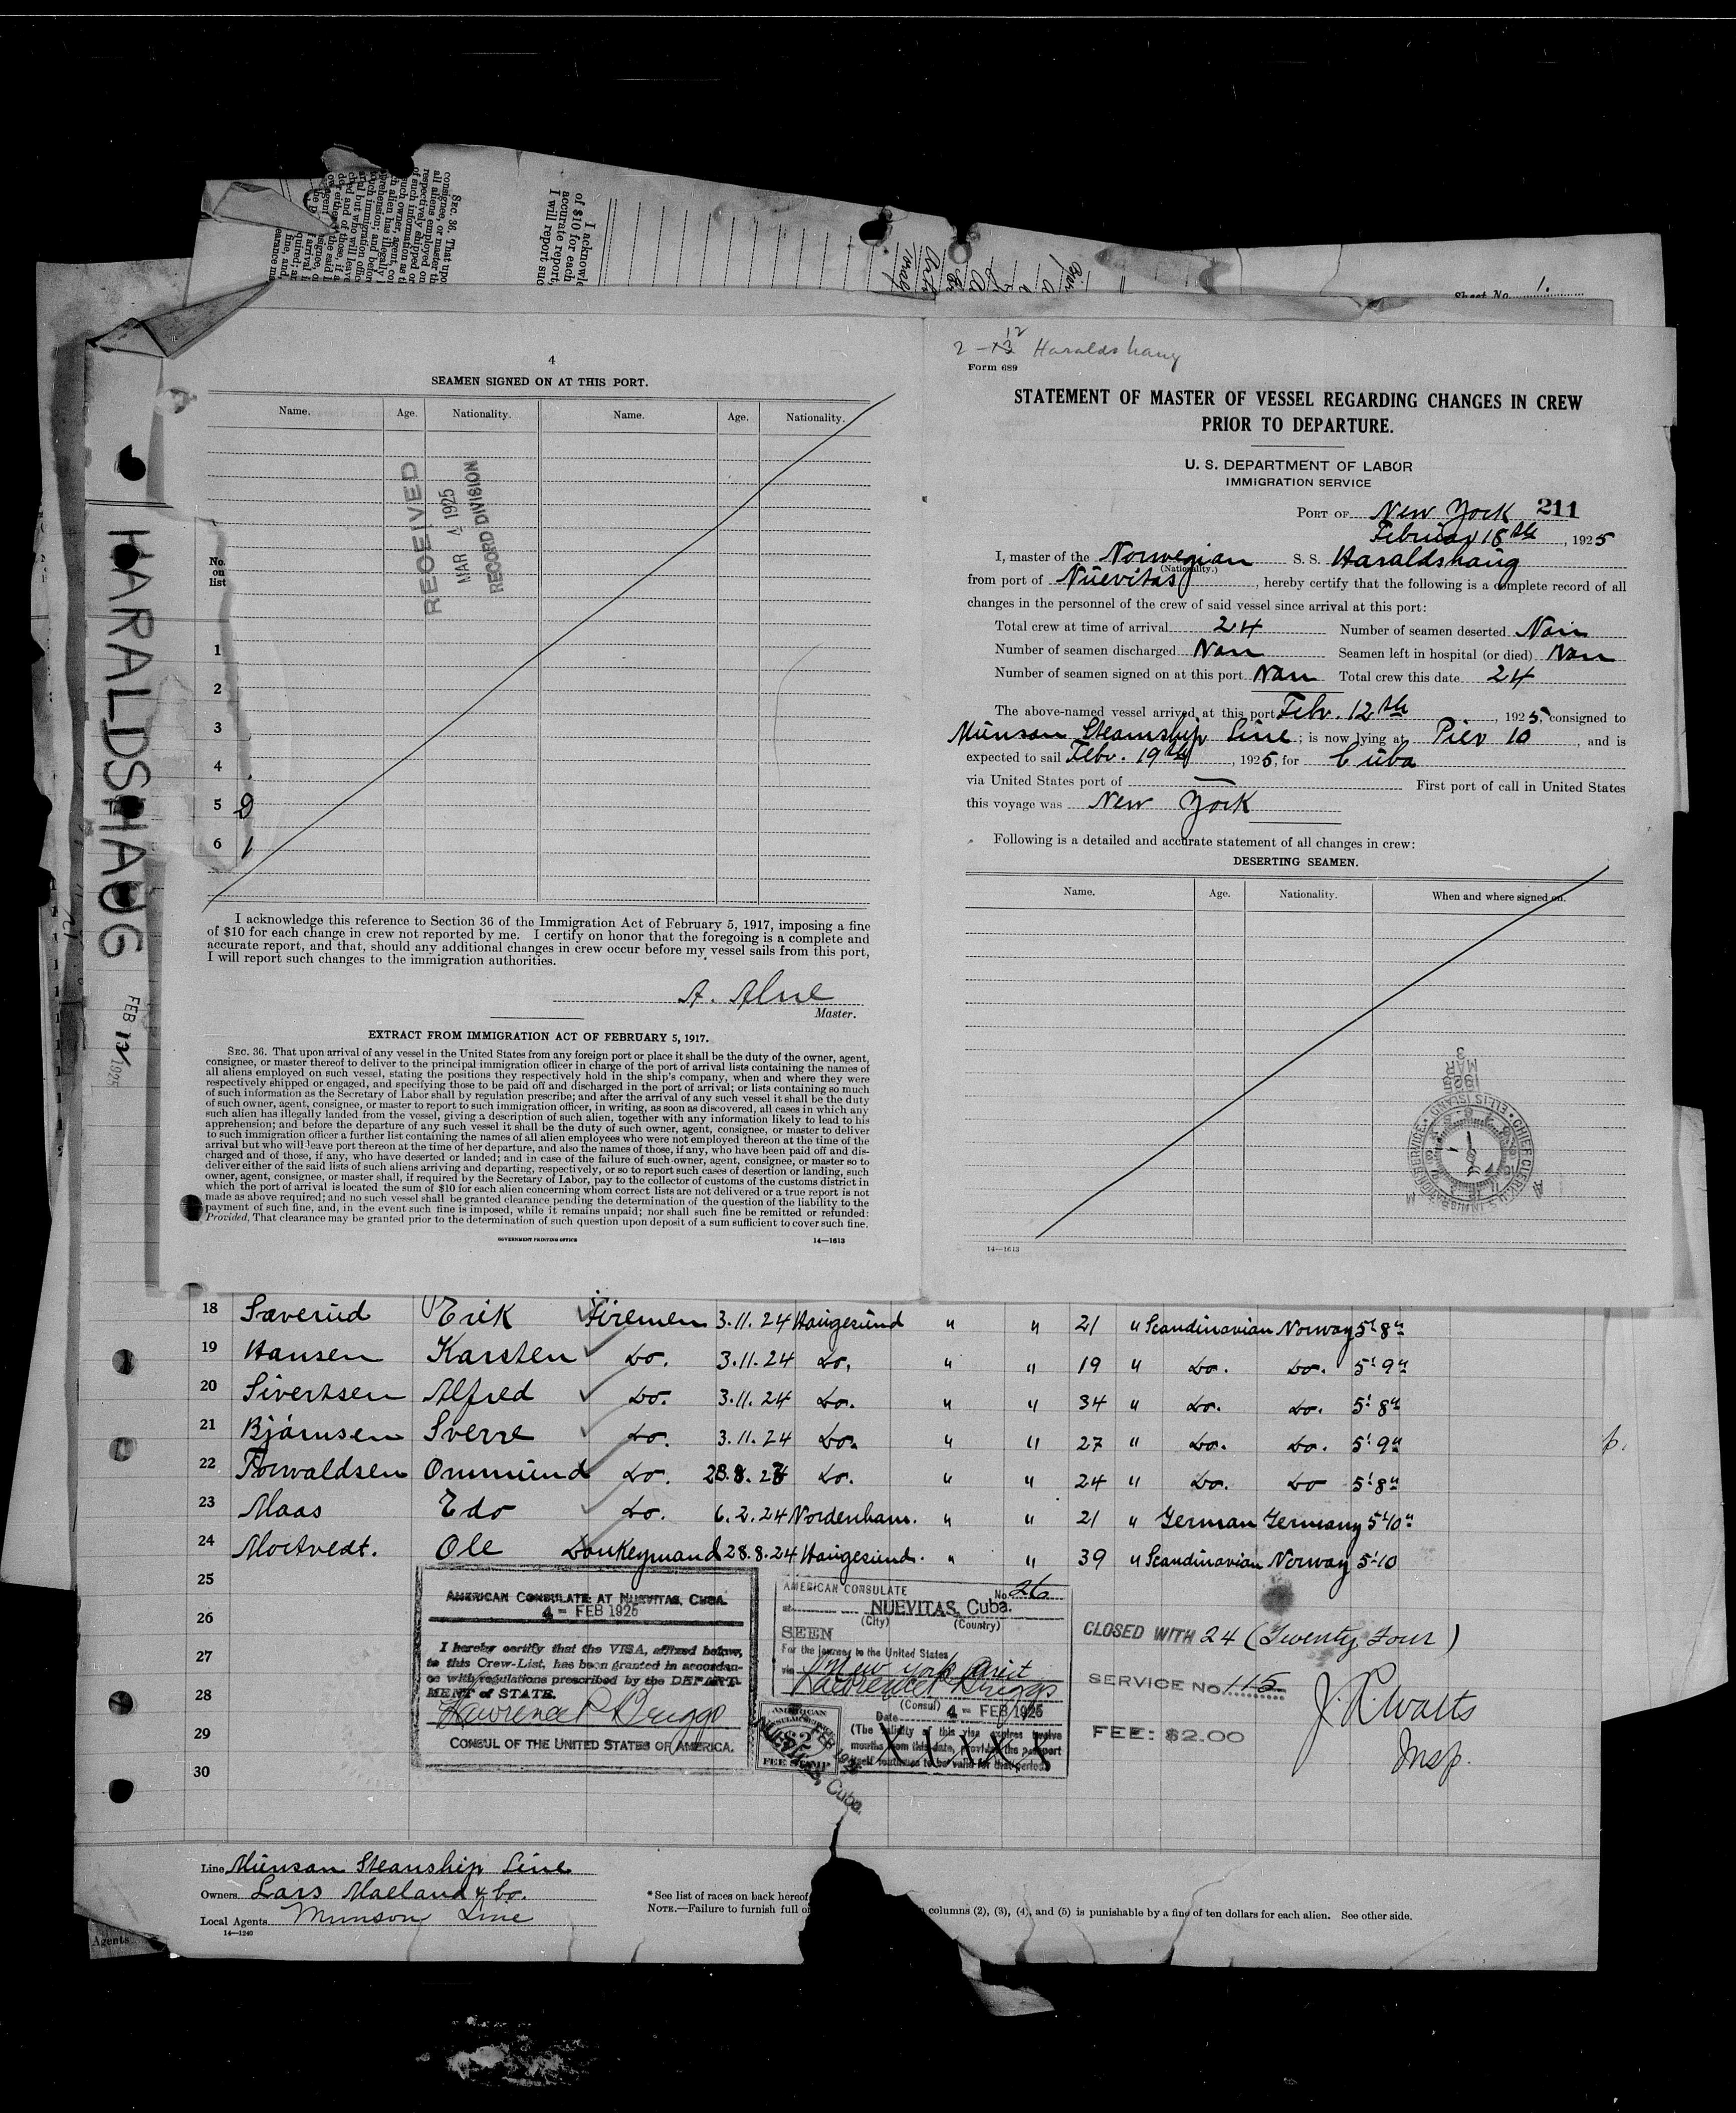 Sheet No. 1.
I acknowle
of $10 for each
accurate report,
I will report suc
HARALDSHAUG
FEB 12 1925
4
SEAMEN SIGNED ON AT THIS PORT.
Name. Age. Nationality. Name. Age. Nationality.
RECEIVED
MAR 4 1925
RECORD DIVISION
No.
on
list
1
2
3
4
5
6
I acknowledge this reference to Section 36 of the Immigration Act of February 5, 1917, imposing a fine
of $10 for each change in crew not reported by me. I certify on honor that the foregoing is a complete and
accurate report, and that, should any additional changes in crew occur before my vessel sails from this port,
I will report such changes to the immigration authorities.
A. Alne
Master.
EXTRACT FROM IMMIGRATION ACT OF FEBRUARY 5, 1917.
SEC. 36. That upon arrival of any vessel in the United States from any foreign port or place it shall be the duty of the owner, agent,
consignee, or master thereof to deliver to the principal immigration officer in charge of the port of arrival lists containing the names of
all aliens employed on such vessel, stating the positions they respectively hold in the ship's company, when and where they were
respectively shipped or engaged, and specifying those to be paid off and discharged in the port of arrival; or lists containing so much
of such information as the Secretary of Labor shall by regulation prescribe; and after the arrival of any such vessel it shall be the duty
of such owner, agent, consignee, or master to report to such immigration officer, in writing, as soon as discovered, all cases in which any
such alien has illegally landed from the vessel, giving a description of such alien, together with any information likely to lead to his
apprehension; and before the departure of any such vessel it shall be the duty of such owner, agent, consignee, or master to deliver
to such immigration officer a further list containing the names of all alien employees who were not employed thereon at the time of the
arrival but who will leave port thereon at the time of her departure, and also the names of those, if any, who have been paid off and dis-
charged and of those, if any, who have deserted or landed; and in case of the failure of such owner, agent, consignee, or master so to
deliver either of the said lists of such aliens arriving and departing, respectively, or so to report such cases of desertion or landing, such
owner, agent, consignee, or master shall, if required by the Secretary of Labor, pay to the collector of customs of the customs district in
which the port of arrival is located the sum of $10 for each alien concerning whom correct lists are not delivered or a true report is not
made as above required; and no such vessel shall be granted clearance pending the determination of the question of the liability to the
payment of such fine, and, in the event such fine is imposed, while it remains unpaid; nor shall such fine be remitted or refunded:
Provided, That clearance may be granted prior to the determination of such question upon deposit of a sum sufficient to cover such fine.
GOVERNMENT PRINTING OFFICE 14—1613
2 - 12 Haraldshaug
Form 689
STATEMENT OF MASTER OF VESSEL REGARDING CHANGES IN CREW
PRIOR TO DEPARTURE.
U. S. DEPARTMENT OF LABOR
IMMIGRATION SERVICE
PORT OF New York 211
Februar 18th, 1925
I, master of the Norwegian S. S. Haraldshaug
(Nationality.)
from port of Nuevitas, hereby certify that the following is a complete record of all
changes in the personnel of the crew of said vessel since arrival at this port:
Total crew at time of arrival 24 Number of seamen deserted Non
Number of seamen discharged Non Seamen left in hospital (or died) Non
Number of seamen signed on at this port Non Total crew this date 24
The above-named vessel arrived at this port Febr. 12th, 1925, consigned to
Munson Steamship Line; is now lying at Pier 10, and is
expected to sail Febr. 19th, 1925, for Cuba
via United States port of — First port of call in United States
this voyage was New York
Following is a detailed and accurate statement of all changes in crew:
DESERTING SEAMEN.
Name. Age. Nationality. When and where signed on.
CHIEF CLERK
U.S. IMMIGRATION SERVICE
ELLIS ISLAND
1925
MAR
3
14—1613
18 Sæverud Erik Firemen 3.11.24 Haugesund " " 21 " Scandinavian Norway 5' 8"
19 Hansen Karsten do. 3.11.24 do. " " 19 " do. do. 5' 9"
20 Sivertsen Alfred do. 3.11.24 do. " " 34 " do. do. 5' 8"
21 Bjørnsen Sverre do. 3.11.24 do. " " 27 " do. do. 5' 9"
22 Torvaldsen Ommund do. 28.8.24 do. " " 24 " do. do 5' 8"
23 Maas Edo do. 6.2.24 Nordenham. " " 21 " German Germany 5'10"
24 Mortvedt. Ole Donkeymand 28.8.24 Haugesund. " " 39 " Scandinavian Norway 5'10
25
26
27
28
29
30
AMERICAN CONSULATE AT NUEVITAS, CUBA.
4 - FEB 1925
I hereby certify that the VISA, affixed below,
to this Crew-List, has been granted in accordan-
ce with regulations prescribed by the DEPART-
MENT of STATE.
Lawrence P Briggs
CONSUL OF THE UNITED STATES OF AMERICA.
AMERICAN CONSULATE No. 26
at NUEVITAS, Cuba.
(City) (Country)
SEEN
For the journey to the United States
via New York direct
Lawrence P Briggs
(Consul)
Date 4 - FEB 1925
(The validity of this visa expires twelve
months from this date, provided the passport
itself continues to be valid for that period)
AMERICAN
CONSULAR SERVICE
$2
FEE STAMP
NUEVITAS, Cuba.
CLOSED WITH 24 (Twenty Four)
SERVICE No. 115
FEE: $2.00
J. R. Watts
Insp.
Line Munson Steamship Line
Owners Lars Maeland & Co.
Local Agents Munson Line
14—1240
Agents
* See list of races on back hereof
NOTE.—Failure to furnish full or columns (2), (3), (4), and (5) is punishable by a fine of ten dollars for each alien. See other side.